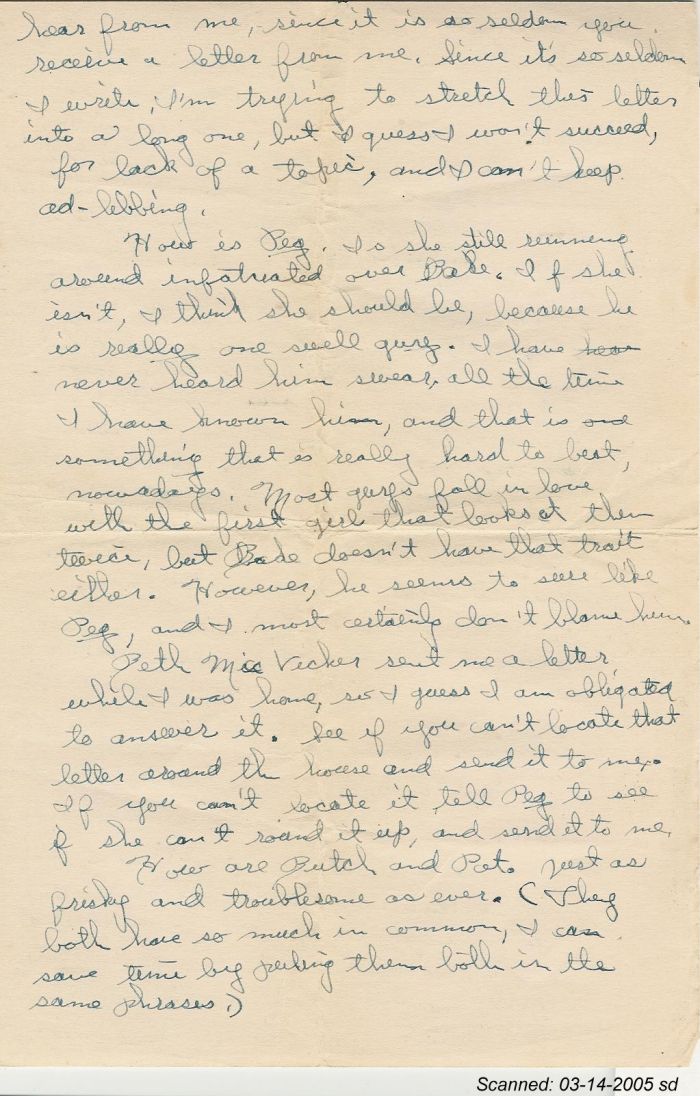 hear from me, since it is so seldom you
receive a letter from me. Since it's so seldom
I write, I'm trying to stretch this letter
into a long one, but I guess I won't succeed,
for lack of a topic, and I can't keep
ad-lebbing.
How is Peg. Is she still running
around infatuated over Babe. If she
isn't, I think she should be, because he
is really one swell guy. I have
never heard him swear, all the time
I have known him, and that is
something that is really hard to beat,
nowadays. Most guys fall in love
with the first girl that looks at them
twice, but Babe doesn't have that trait
either. However, he seems to sure like
Peg, and I most certainly don't blame him.
Mac Vicker sent me a letter
while I was home, so I guess I am obligated
to answer it. See if you can't locate that
letter around the house and send it to me.
If you can't locate it tell Peg to see
if she can't round it up, and send it to me.
How are Butch and Pat. Just as
frisky and troublesome as ever. (They
both have so much in common, I can
save time by putting them both in the
same phrases.)
Scanned: 03-14-2005 sd